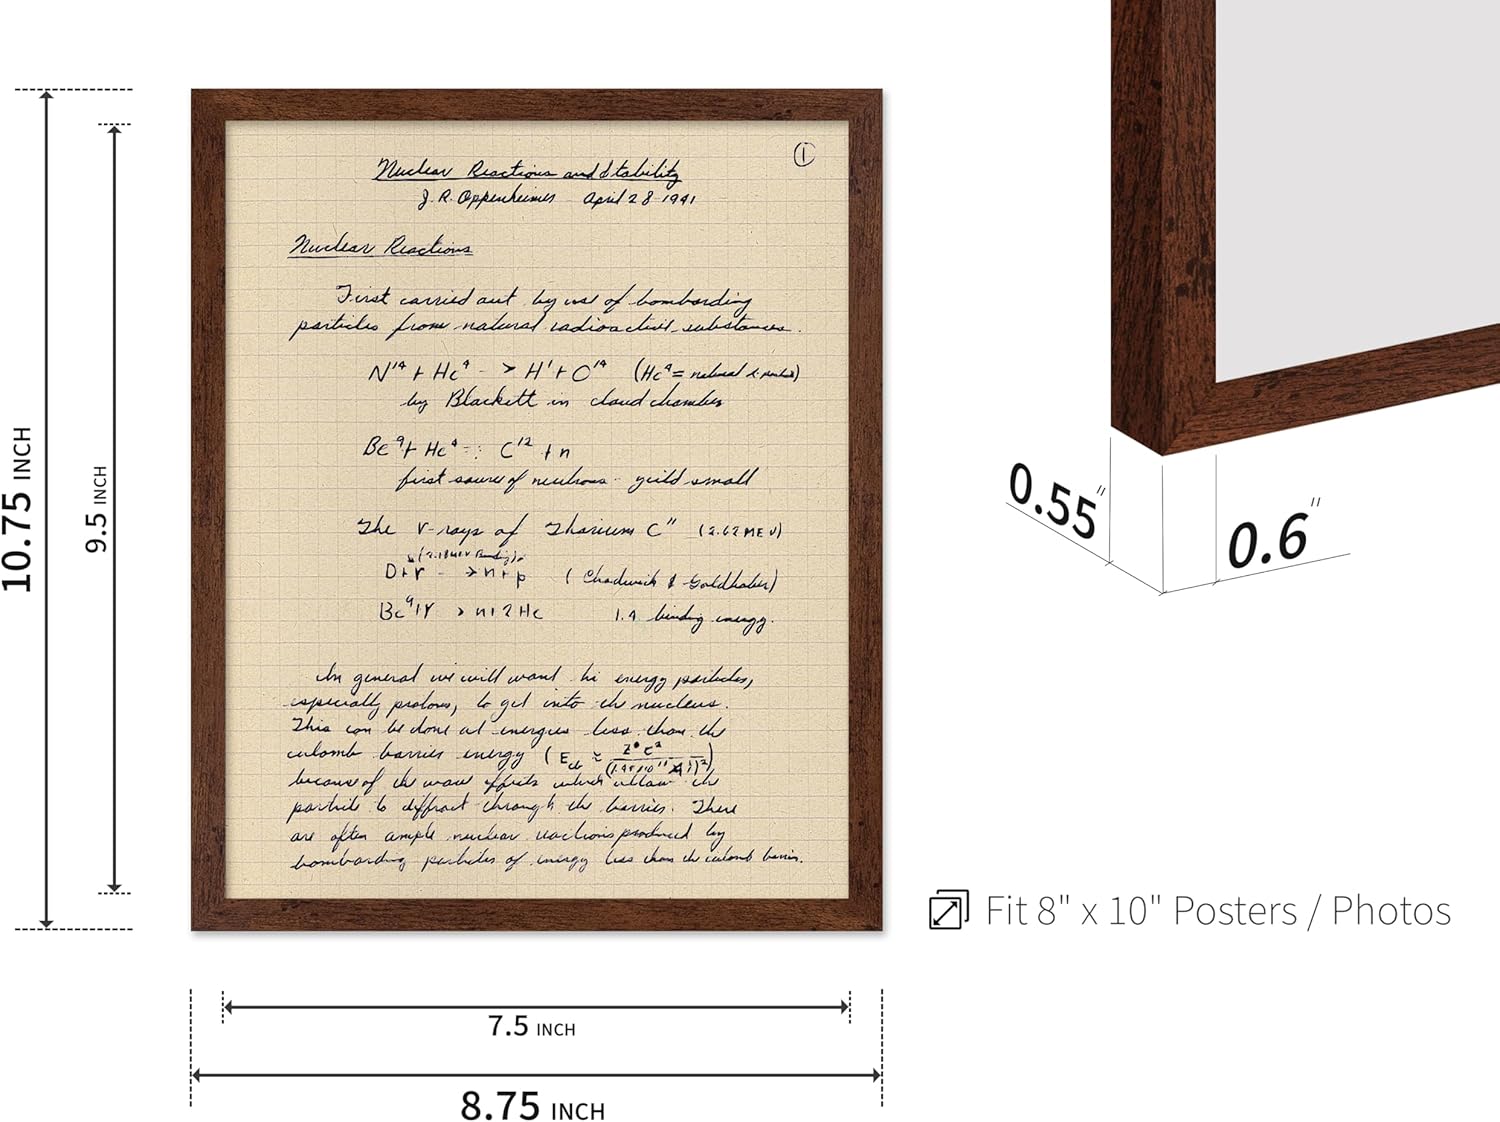 ①
Nuclear Reactions and Stability
J. R. Oppenheimer April 28 1941
Nuclear Reactions
First carried out by use of bombarding
particles from natural radioactive substances.
N¹⁴ + He⁴ -> H¹ + O¹⁷ (He⁴ = natural
by Blackett in cloud chamber
Be⁹ + He⁴ C¹² + n
first source of neutrons - yield small
The γ-rays of Thorium C" (2.62 MEV)
(2.18 MEV Binding)
D + γ -> n + p (Chadwick & Goldhaber)
Be⁹ + γ > n + 2He binding energy.
In general we will want hi energy particles,
especially protons, to get into the nucleus.
This can be done at energies less than the
culomb barrier energy (
because of the wave effects which allow the
particle to diffract through the barrier. There
are often ample nuclear reactions produced by
bombarding particles of energy less than the culomb barrier.
10.75 INCH
9.5 INCH
7.5 INCH
8.75 INCH
0.55"
0.6"
Fit 8" x 10" Posters / Photos